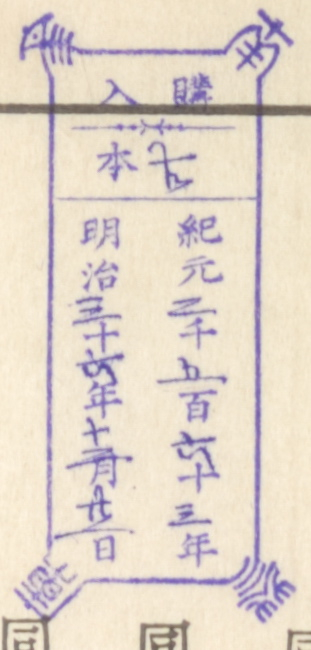 購入
古本
紀元二千五百六十三年
明治三十六年十二月廿一日
同
同
同